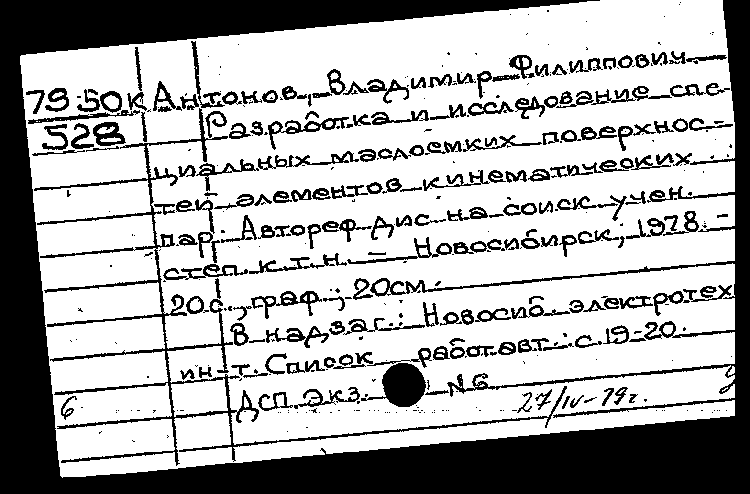 79-50к Антонов, Владимир Филиппович.
528 Разработка и исследование спе-
циальных маслоемких поверхнос-
тей элементов кинематических
пар: Автореф дис на соиск учен.
степ. к.т.н. - Новосибирск, 1978. -
20с., граф.; 20см.
В надзаг.: Новосиб. электротех
ин-т. Список работ авт.: с.19-20.
ДСП. Экз. N6
6
27/IV-79г.